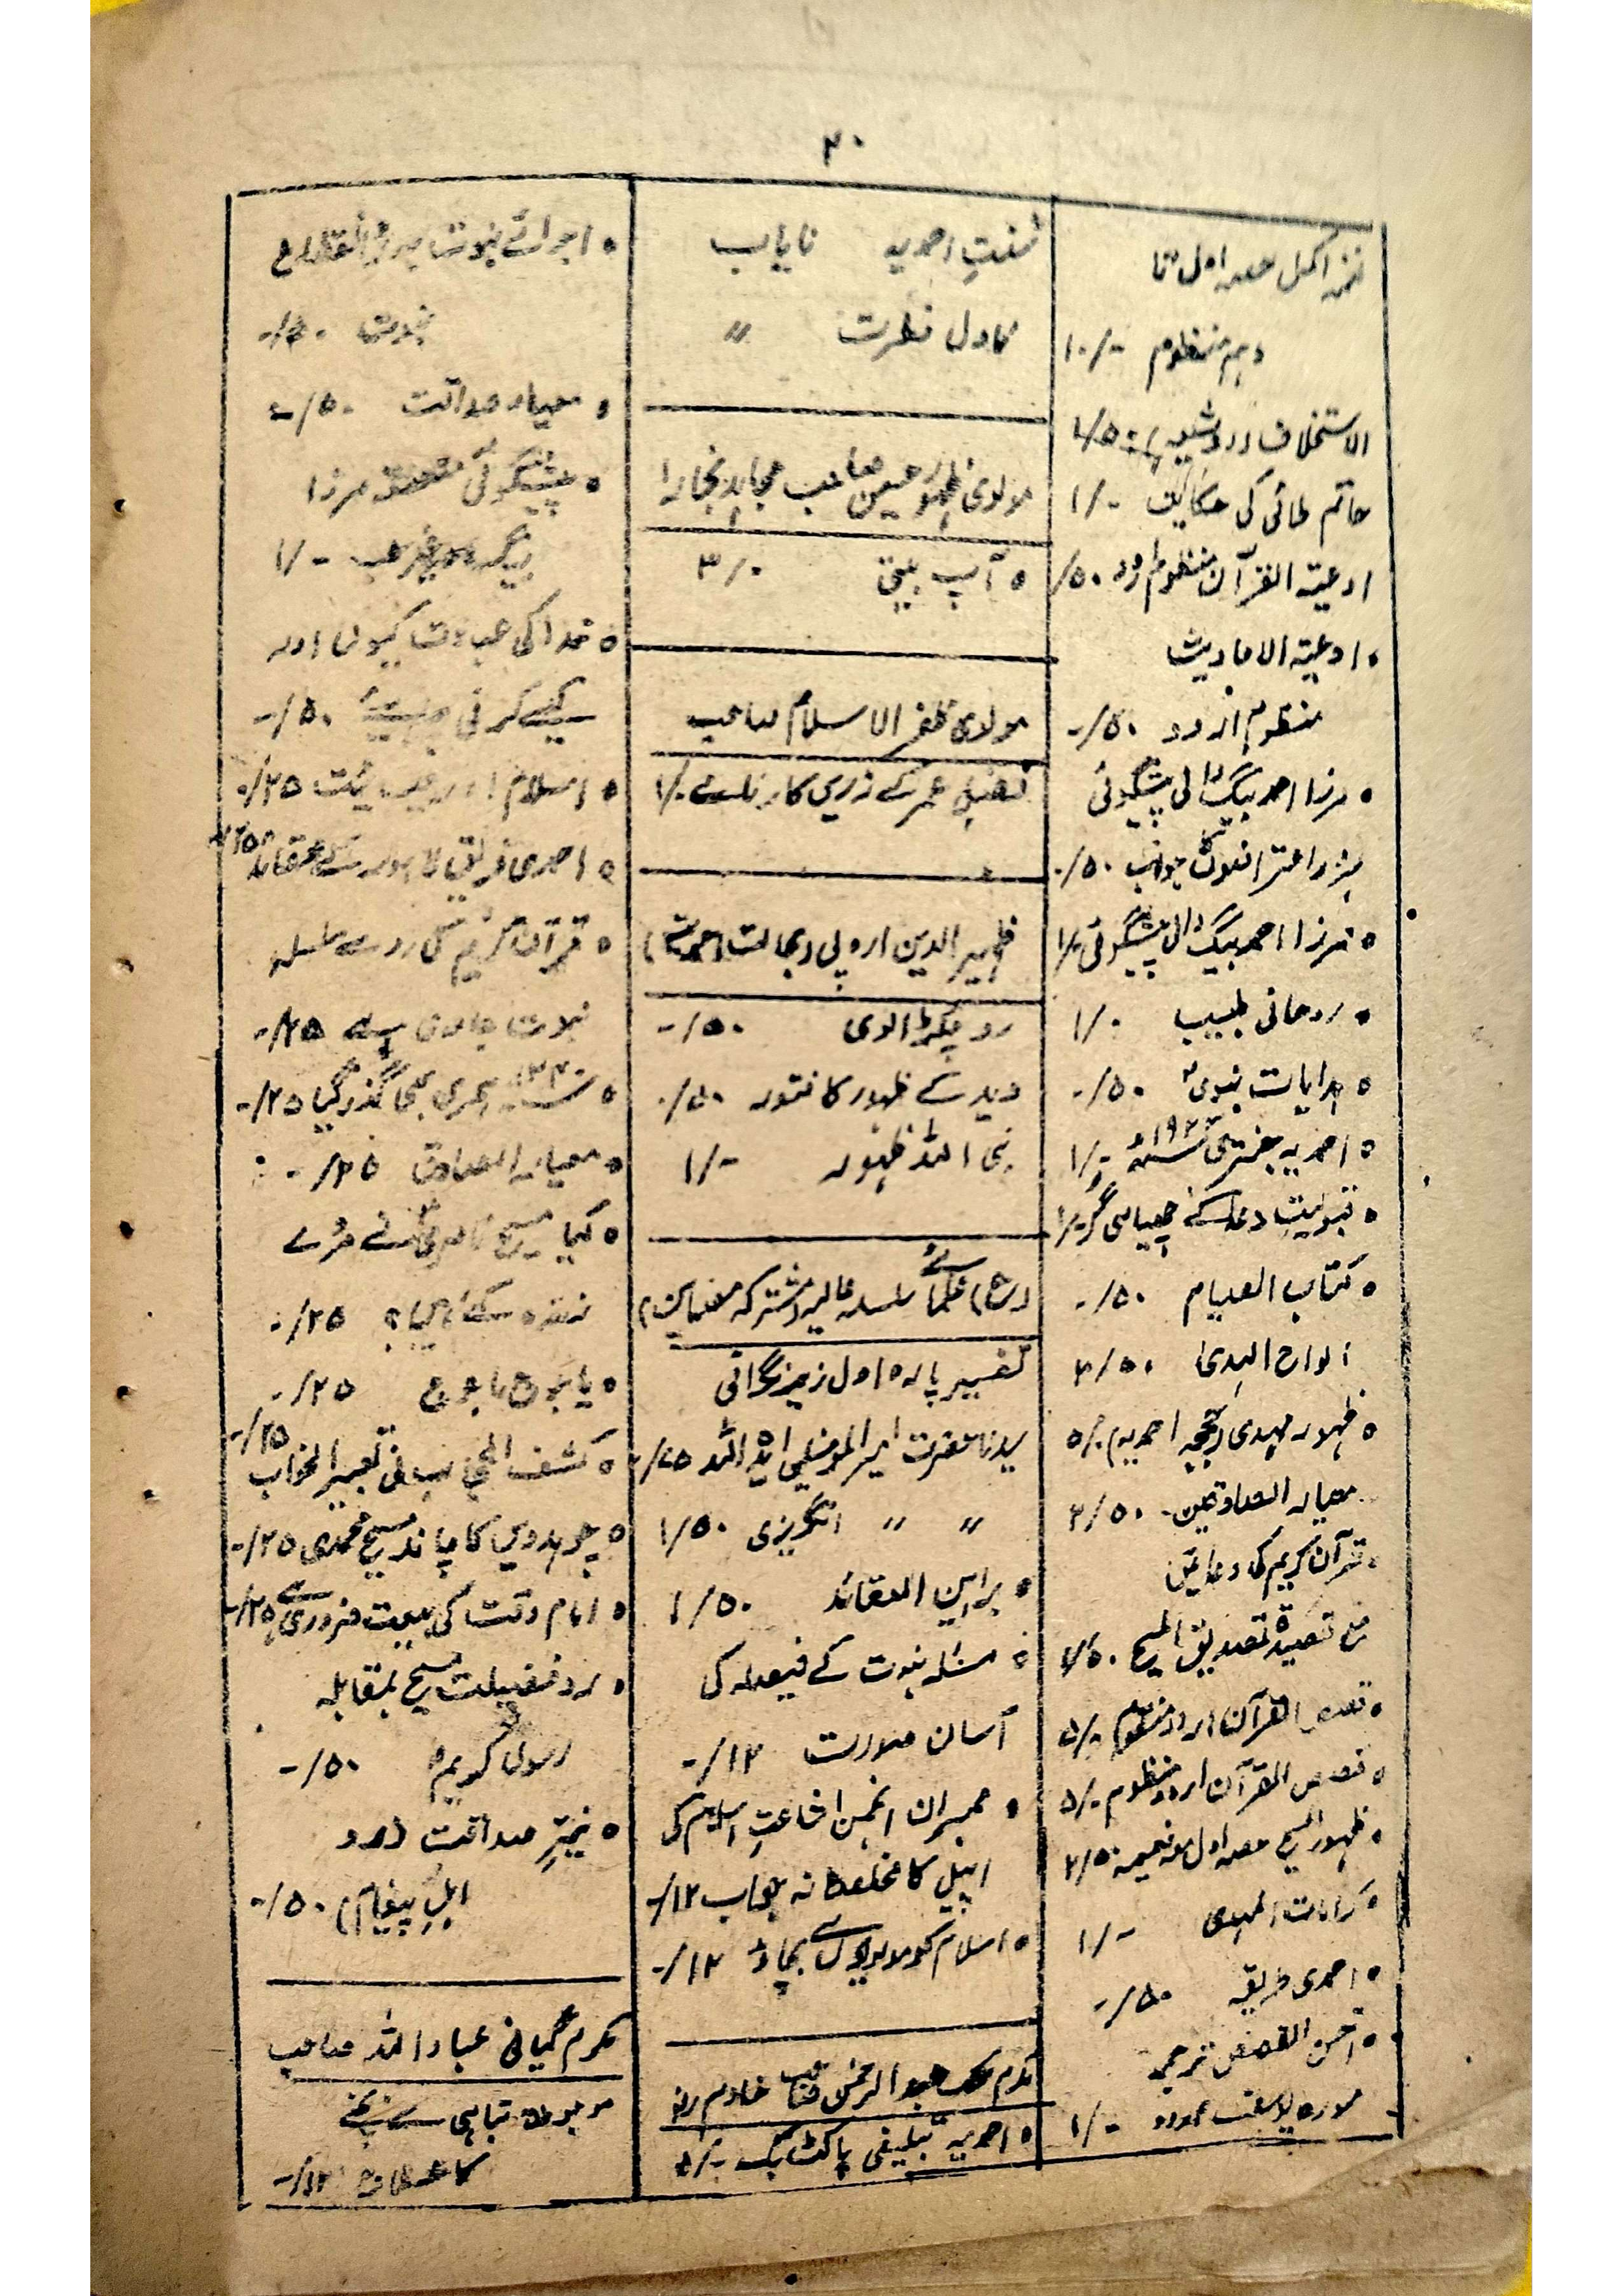 ۲۰
نغمہ اکمل حصہ اول تا
دہم منظوم ۱۰/-
الاستخلاف اردو شیعہ
حاتم طائی کی حکایت ۱/-
ادعیۃ القرآن منظوم اردو ۵۰/
• ادعیۃ الاحادیث
منظوم اردو ۵۰/-
• مرزا احمد بیگ والی پیشگوئی
پر اعتراضوں کا جواب ۵۰/-
• مرزا احمد بیگ والی پیشگوئی ۱/-
• روحانی طبیب ۱/-
• ہدایات نبوی ۵۰/-
• احمدیہ جنتری ۱/-
• قبولیت دعا کے چھیاسی گر
• کتاب الصیام ۵۰/-
الواح الہدیٰ ۵۰/۳
• ظہور مہدی ۵/-
معیار الصادقین ۵۰/۲
• قرآن کریم کی دعائیں
مع قصیدہ تصدیق المسیح
• قصص القرآن اردو منظوم ۵/-
• قصص القرآن اردو منظوم ۵/-
• ظہور المسیح حصہ اول مع ضمیمہ ۵۰/۲
• کرامات المہدی ۱/-
• احمدی طریقہ ۵۰/-
• احسن القصص ترجمہ
سورہ یوسف اردو ۱/-
سنت احمدیہ نایاب
عادل فطرت "
مولوی ظہور حسین صاحب مجاہد بخارا
• آپ بیتی ۳/-
مولوی ظفر الاسلام صاحب
فضل عمر کے زریں کارنامے ۱/-
ظہیر الدین اروپی (بحالت احمدیت)
رد چکڑالوی ۵۰/-
وید کے ظہور کا فتور ۵۰/-
نبی اللہ ظہور ۱/-
علمائے سلسلہ عالیہ (مشترکہ مضامین)
تفسیر پارہ اول زیر نگرانی
سیدنا حضرت امیر المومنین ایدہ اللہ
" " انگریزی ۵۰/۱
• براہین العقائد ۵۰/۱
• مسئلہ نبوت کے فیصلہ کی
آسان صورت ۱۲/-
• ممبران انجمن اشاعت اسلام کی
اپیل کا مخلصانہ جواب ۱۲/-
• اسلام کو مولویوں سے بچاؤ ۱۲/-
مکرم ملک عبد الرحمٰن صاحب خادم
• احمدیہ تبلیغی پاکٹ بک
• اجرائے نبوت
نبوت ۵۰/-
• معیار صداقت ۵۰/-
• پیشگوئی متعلقہ مرزا
بیگ وغیرہ ۱/-
• خدا کی عبادت کیوں اور
کیسے کرنی چاہیئے ۵۰/-
• اسلام اور عیسائیت ۲۵/-
• احمدی فریق لاہور کے عقائد ۲۵/-
• قرآن کریم کی رو سے سلسلہ
نبوت جاری ہے ۲۵/-
• ہجری بھی گذر گیا ۲۵/-
• معیار الصادق ۲۵/-
• کیا مسیح ناصری نے مردے
زندہ کئے ہیں؟ ۲۵/-
• یاجوج ماجوج ۲۵/-
• کشف الحجاب فی تعبیر الخواب ۲۵/-
• چودہویں کا چاند مسیح محمدی ۲۵/-
• امام وقت کی بیعت ضروری ہے ۲۵/-
• رد فضیلت مسیح بمقابلہ
رسول کریم ۵۰/-
• نیّرِ صداقت (رد
اہل پیغام) ۵۰/-
مکرم گیانی عباد اللہ صاحب
موجودہ تباہی سے بچنے
کا علاج ۱۲/-